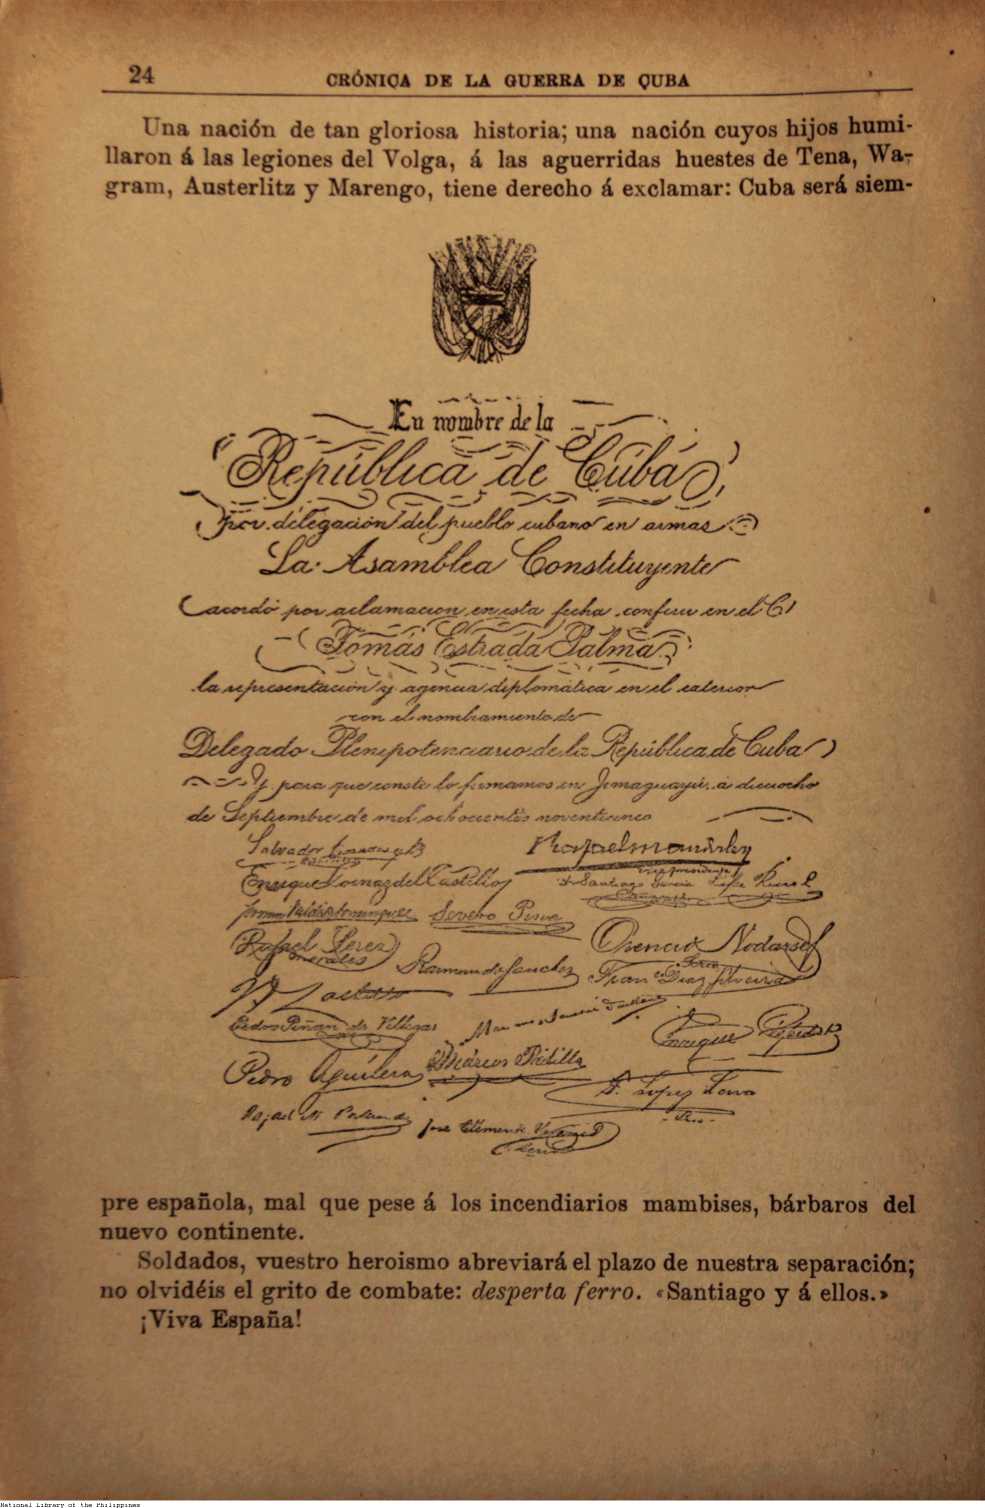 24
CRÓNICA DE LA GUERRA DE CUBA
Una nación de tan gloriosa historia; una nación cuyos hijos humi-
llaron á las legiones del Volga, á las aguerridas huestes de Tena, Wa-
gram, Austerlitz y Marengo, tiene derecho á exclamar: Cuba será siem-
En nombre de la
República de Cuba
por delegación del pueblo cubano en armas
La Asamblea Constituyente
acordó por aclamación en esta fecha conferir en el C
Tomás Estrada Palma
la representación y agencia diplomática en el exterior
con el nombramiento de
Delegado Plenipotenciario de la República de Cuba
Y para que conste lo firmamos en Jimaguayú, a dieciocho
de Septiembre de mil ochocientos noventicinco
Salvador
Enrique Loinaz del Castillo
Fermín Valdés Domínguez Severo Pina
Rafael Pérez Morales Orencio Nodarse
Raimundo Sánchez Fran co Díaz Silveira
Pedro Piñan de Villegas
Enrique
Pedro Aguilera Marcos Padilla
F. López Leiva
José Clemente
pre española, mal que pese á los incendiarios mambises, bárbaros del
nuevo continente.
Soldados, vuestro heroismo abreviará el plazo de nuestra separación;
no olvidéis el grito de combate: desperta ferro. «Santiago y á ellos.»
¡Viva España!
National Library of the Philippines